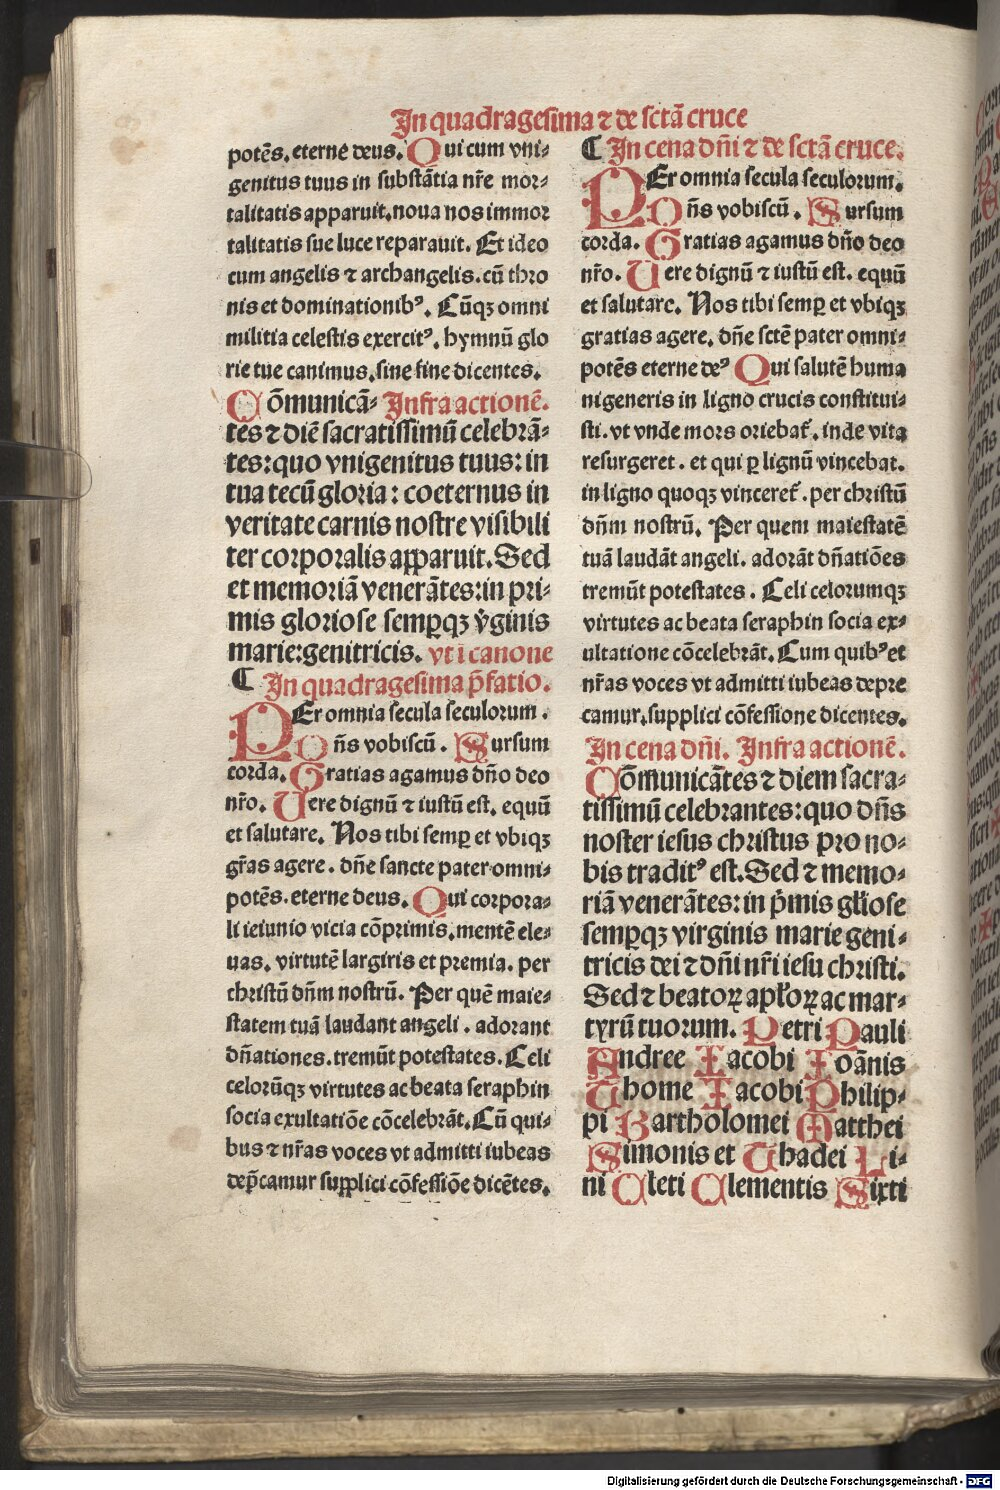 In quadragesima ⁊ de sctā cruce
potēs. eterne deus. Qui cum vni⸗
genitus tuus in substātia nr̄e mor⸗
talitatis apparuit. noua nos immor
talitatis sue luce reparauit. Et ideo
cum angelis ⁊ archangelis. cū thro
nis et dominationibꝰ. Cūqꝫ omni
militia celestis exercitꝰ. hymnū glo
rie tue canimus. sine fine dicentes.
Cōmunicā⸗ Infra actionē.
tes ⁊ diē sacratissimū celebrā⸗
tes: quo vnigenitus tuus: in
tua tecū gloria: coeternus in
veritate carnis nostre visibili
ter corporalis apparuit. Sed
et memoriā venerātes: in pri⸗
mis gloriose semꝑqꝫ v̓ginis
marie: genitricis. vt i canone
¶ In quadragesima p̄fatio.
PEr omnia secula seculorum.
Dn̄s vobiscū. Sursum
corda. Gratias agamus dn̄o deo
nr̄o. Uere dignū ⁊ iustū est. equū
et salutare. Nos tibi semꝑ et vbiqꝫ
gr̄as agere. dn̄e sancte pater omni⸗
potēs. eterne deus. Qui corpora⸗
li ieiunio vicia cōprimis. mentē ele⸗
uas. virtutē largiris et premia. per
christū dn̄m nostrū. Per quē maie⸗
statem tuā laudant angeli. adorant
dn̄ationes. tremūt potestates. Celi
celorūqꝫ virtutes ac beata seraphin
socia exultatiōe cōcelebrāt. Cū qui⸗
bus ⁊ nr̄as voces vt admitti iubeas
dep̄camur supplici cōfessiōe dicētes.
¶ In cena dn̄i ⁊ de sctā cruce.
PEr omnia secula seculorum.
Dn̄s vobiscū. Sursum
corda. Gratias agamus dn̄o deo
nr̄o. Uere dignū ⁊ iustū est. equū
et salutare. Nos tibi semꝑ et vbiqꝫ
gratias agere. dn̄e sctē pater omni⸗
potēs eterne deꝰ Qui salutē huma
ni generis in ligno crucis constitui⸗
sti. vt vnde mors oriebat̄. inde vita
resurgeret. et qui ꝑ lignū vincebat.
in ligno quoqꝫ vinceret̄. per christū
dn̄m nostrū. Per quem maiestatē
tuā laudāt angeli. adorāt dn̄atiōes
tremūt potestates. Celi celorumqꝫ
virtutes ac beata seraphin socia ex⸗
ultatione cōcelebrāt. Cum quibꝰ et
nr̄as voces vt admitti iubeas depre
camur. supplici cōfessione dicentes.
In cena dn̄i. Infra actionē.
Cōmunicātes ⁊ diem sacra⸗
tissimū celebrantes: quo dn̄s
noster iesus christus pro no⸗
bis traditꝰ est. Sed ⁊ memo⸗
riā venerātes: in p̄mis gl̄iose
semꝑqꝫ virginis marie geni⸗
tricis dei ⁊ dn̄i nr̄i iesu christi.
Sed ⁊ beatoꝝ apl̄oꝝ ac mar⸗
tyrū tuorum. Petri Pauli
Andree Iacobi Ioānis
Thome Iacobi Philip⸗
pi Bartholomei Matthei
Simonis et Thadei Li⸗
ni Cleti Clementis Sixti
Digitalisierung gefördert durch die Deutsche Forschungsgemeinschaft - DFG